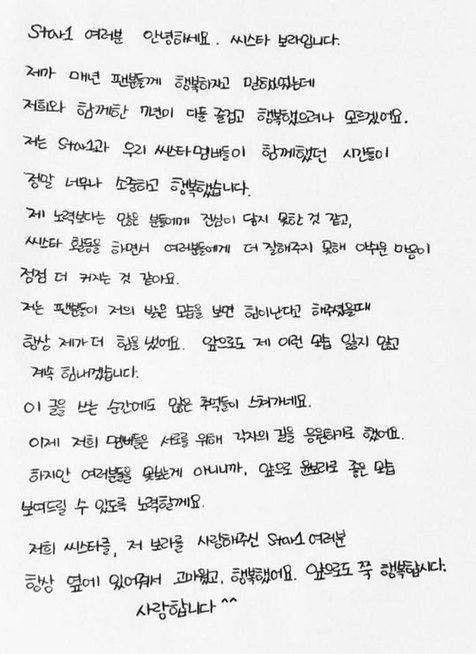 Star1 여러분 안녕하세요. 씨스타 보라입니다.
제가 매년 팬분들께 행복하자고 말했었는데
저희와 함께한 7년이 다들 즐겁고 행복했으려나 모르겠어요.
저는 Star1과 우리 씨스타 멤버들이 함께했던 시간들이
정말 너무나 소중하고 행복했습니다.
제 노력보다는 많은 분들에게 진심이 닿지 못한 것 같고,
씨스타 활동을 하면서 여러분들에게 더 잘해주지 못해 아쉬운 마음이
점점 더 커지는 것 같아요.
저는 팬분들이 저의 밝은 모습을 보면 힘이난다고 해주셨을때
항상 제가 더 힘을 냈어요. 앞으로도 제 이런 모습 잃지 않고
계속 힘내겠습니다.
이 글을 쓰는 순간에도 많은 추억들이 스쳐가네요.
이제 저희 멤버들은 서로를 위해 각자의 길을 응원하기로 했어요.
하지만 여러분들을 못보는게 아니니까, 앞으로 윤보라로 좋은 모습
보여드릴 수 있도록 노력할게요.
저희 씨스타를, 저 보라를 사랑해주신 Star1 여러분
항상 옆에 있어줘서 고마웠고, 행복했어요. 앞으로도 쭉 행복합시다.
사랑합니다 ^^